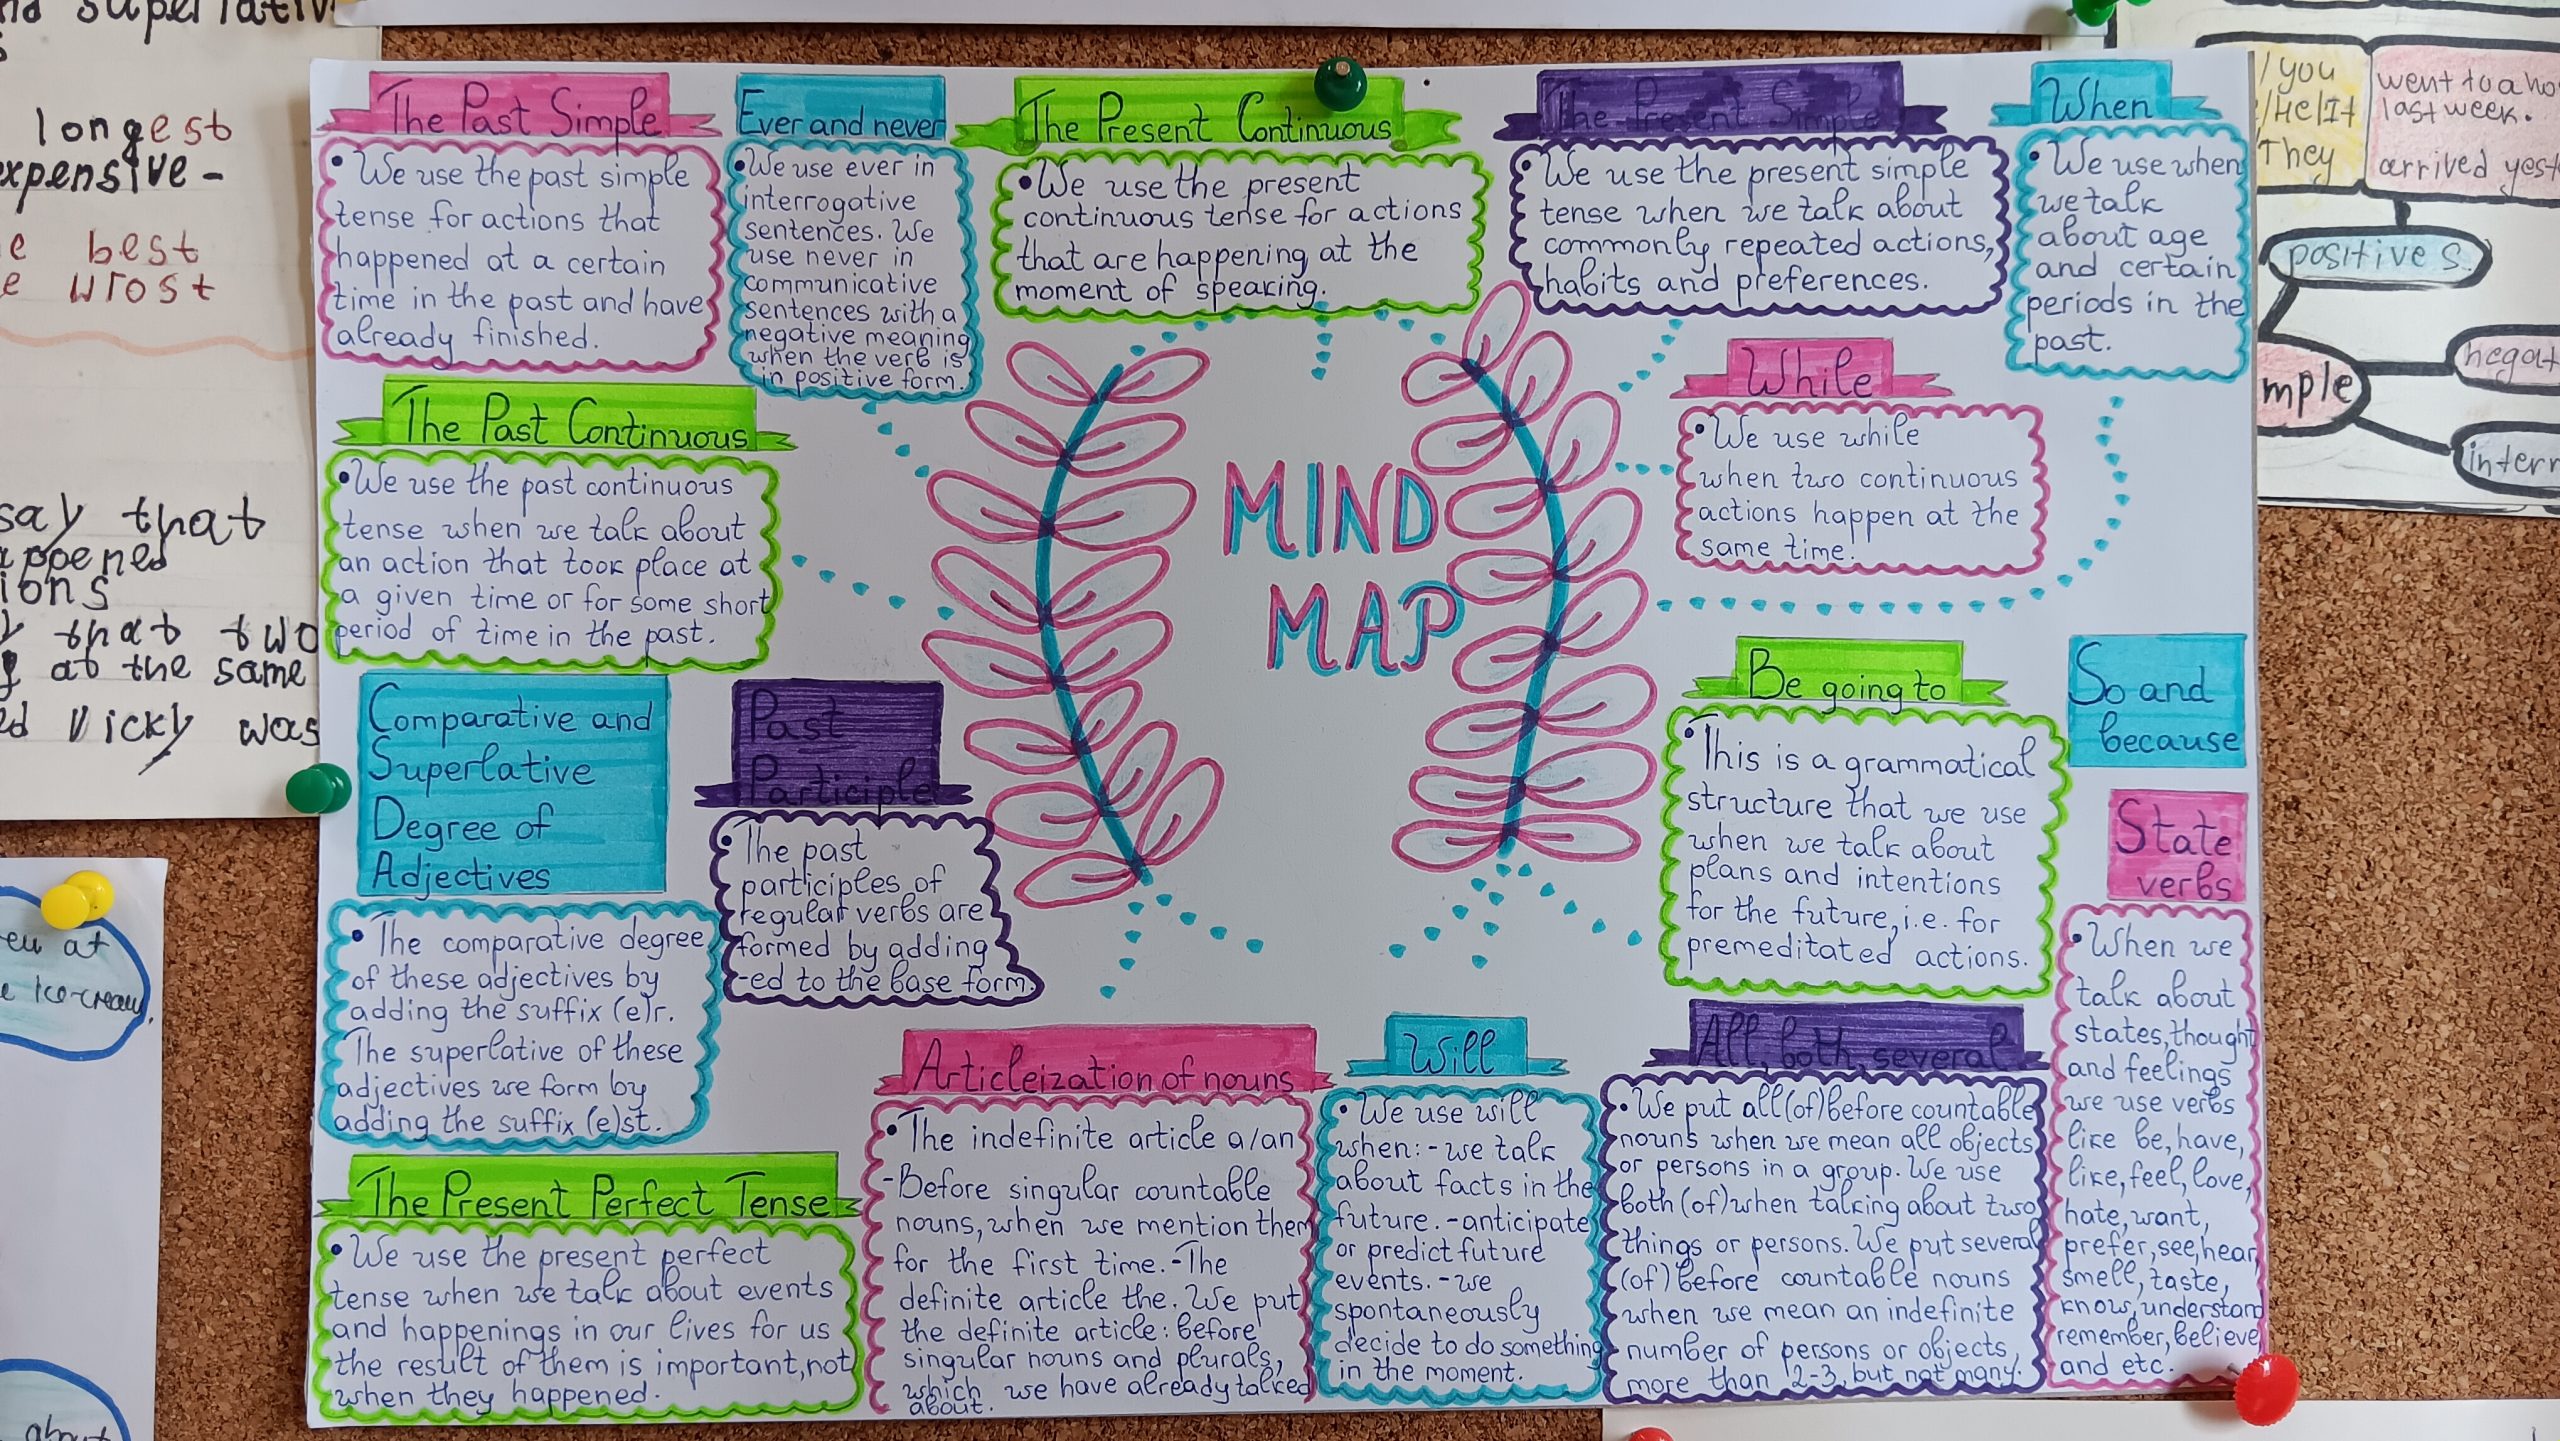 longest
best
wrost
say that
that two
at the same
Vicky was
The Past Simple
• We use the past simple
tense for actions that
happened at a certain
time in the past and have
already finished.
Ever and never
• We use ever in
interrogative
sentences. We
use never in
communicative
sentences with a
negative meaning
when the verb is
in positive form.
The Present Continuous
• We use the present
continuous tense for actions
that are happening at the
moment of speaking.
The Present Simple
• We use the present simple
tense when we talk about
commonly repeated actions,
habits and preferences.
When
• We use when
we talk
about age
and certain
periods in the
past.
The Past Continuous
• We use the past continuous
tense when we talk about
an action that took place at
a given time or for some short
period of time in the past.
MIND
MAP
While
• We use while
when two continuous
actions happen at the
same time.
Comparative and
Superlative
Degree of
Adjectives
• The comparative degree
of these adjectives by
adding the suffix (e)r.
The superlative of these
adjectives we form by
adding the suffix (e)st.
Past
Participle
• The past
participles of
regular verbs are
formed by adding
-ed to the base form.
Be going to
• This is a grammatical
structure that we use
when we talk about
plans and intentions
for the future, i.e. for
premeditated actions.
So and
because
State
verbs
• When we
talk about
states, thought
and feelings
we use verbs
like be, have,
like, feel, love,
hate, want,
prefer, see, hear,
smell, taste,
know, understand
remember, believe
and etc.
The Present Perfect Tense
• We use the present perfect
tense when we talk about events
and happenings in our lives for us
the result of them is important, not
when they happened.
Articleization of nouns
• The indefinite article a/an
-Before singular countable
nouns, when we mention them
for the first time. -The
definite article the. We put
the definite article: before
singular nouns and plurals,
which we have already talked
about.
Will
• We use will
when: - we talk
about facts in the
future. - anticipate
or predict future
events. - we
spontaneously
decide to do something
in the moment.
All, both, several
• We put all (of) before countable
nouns when we mean all objects
or persons in a group. We use
both (of) when talking about two
things or persons. We put several
(of) before countable nouns
when we mean an indefinite
number of persons or objects,
more than 2-3, but not many.
/ you
/He/It
They
went to a
last week.
arrived
positive s.
at
Ice-cream.
about